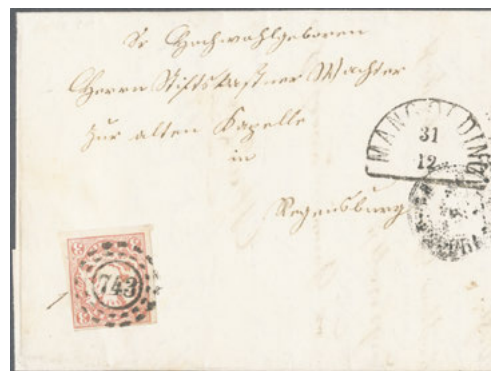 Sr Hochwohlgeboren
Herrn Stiftskastner Wachter
zur alten Kapelle
in
Regensburg
MANGOLDING
31
12
743
3
3
3